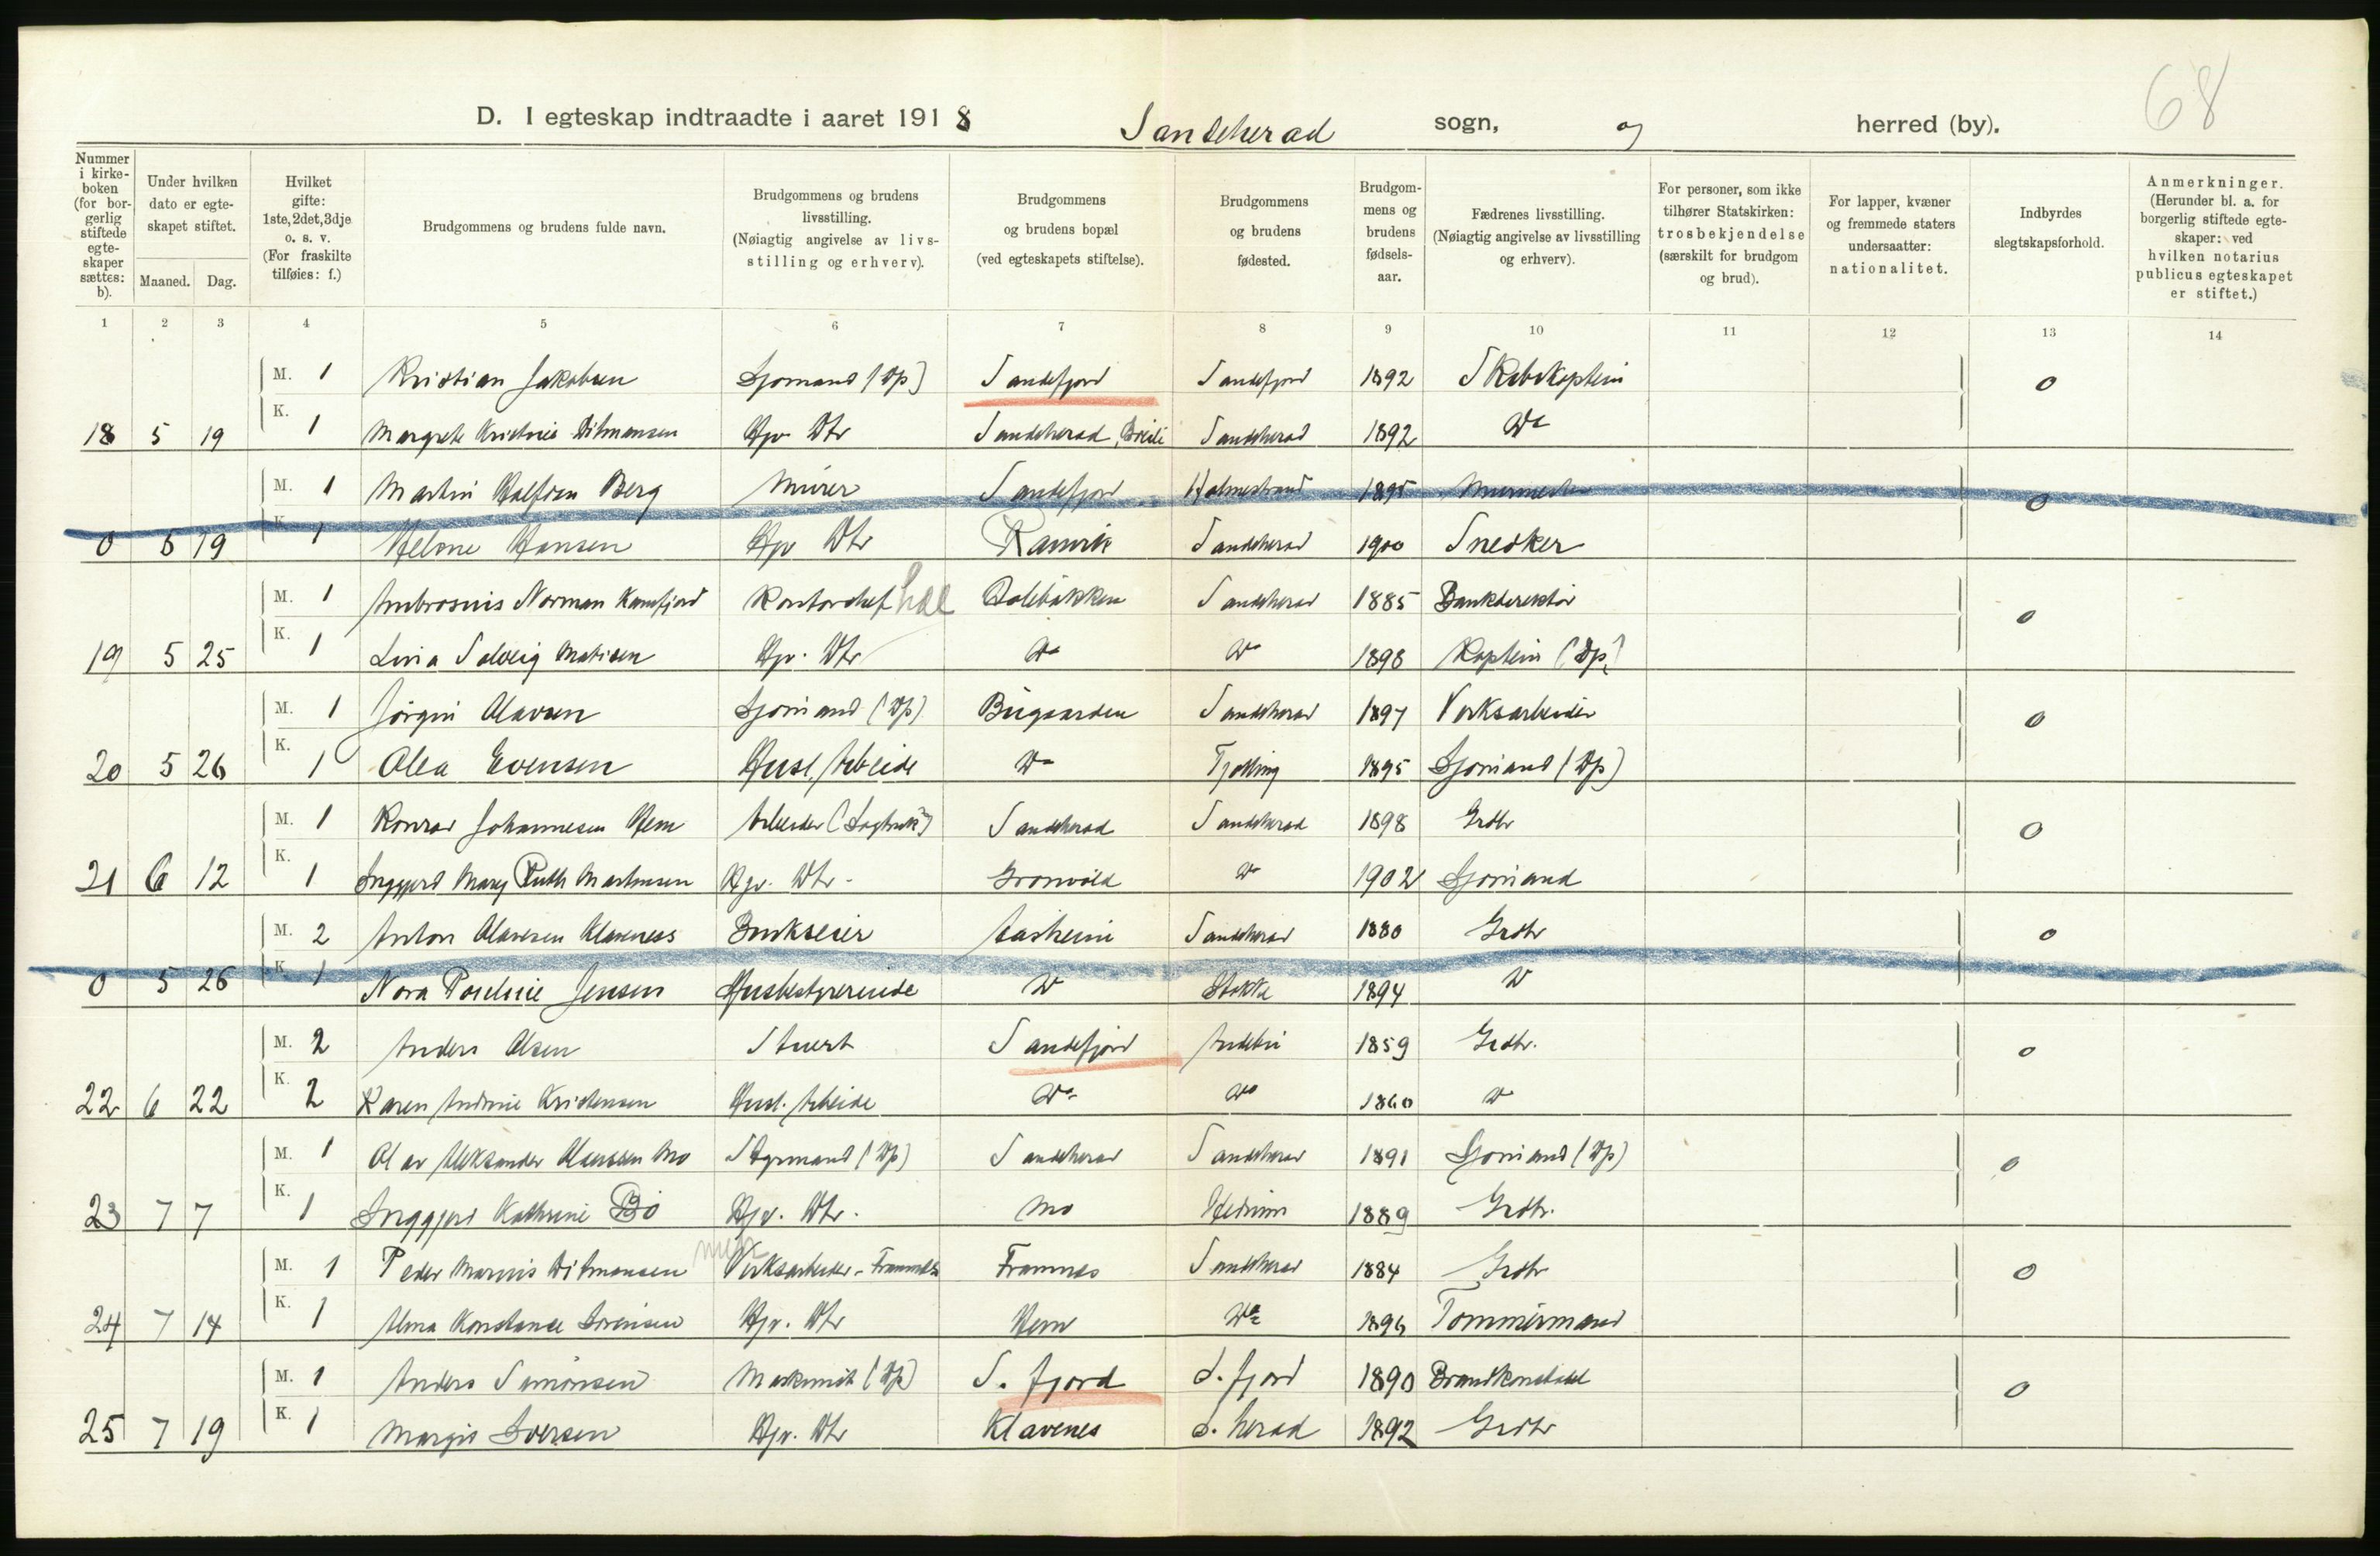 68
D. I egteskap indtraadte i aaret 1918 Sandeherad sogn, og herred (by).
Nummer i kirke-boken (for bor-gerlig stiftede egte-skaper sættes: b).
Under hvilken dato er egte-skapet stiftet.
Maaned. Dag.
Hvilket gifte: 1ste, 2det, 3dje o. s. v. (For fraskilte tilføies: f.)
Brudgommens og brudens fulde navn.
Brudgommens og brudens livsstilling. (Nøiagtig angivelse av livs-stilling og erhverv).
Brudgommens og brudens bopæl (ved egteskapets stiftelse).
Brudgommens og brudens fødested.
Brudgom-mens og brudens fødsels-aar.
Fædrenes livsstilling. (Nøiagtig angivelse av livsstilling og erhverv).
For personer, som ikke tilhører Statskirken: trosbekjendelse (særskilt for brudgom og brud).
For lapper, kvæner og fremmede staters undersaatter: nationalitet.
Indbyrdes slegtskapsforhold.
Anmerkninger. (Herunder bl. a. for borgerlig stiftede egte-skaper: ved hvilken notarius publicus egteskapet er stiftet.)
1 2 3 4 5 6 7 8 9 10 11 12 13 14
M. 1 Kristian Jakobsen Sjømand (Dp) Sandefjord Sandefjord 1892 Skibskaptein 0
18 5 19 K. 1 Margrete Kristine Ditmansen Hjv Dtr Sandeherad, Sandeherad 1892 Do
M. 1 Martin Halfdan Berg Murer Sandefjord Holmestrand 1895 Murmester 0
0 5 19 K. 1 Helene Hansen Hjv Dtr Ranvik Sandeherad 1900 Snedker
M. 1 Ambrosius Norman Kamfjord Kontorchef hval Sandeherad 1885 Bankdirektør 0
19 5 25 K. 1 Livia Solveig Matisen Hjv. Dtr Do Do 1898 Kaptein (Dp)
M. 1 Jörgen Olavsen Sjømand (Dp) Bugaarden Sandeherad 1897 Verksarbeider 0
20 5 26 K. 1 Olea Evensen Husl. Arbeide Do Tjølling 1895 Sjømand (Dp)
M. 1 Konrad Johannesen Hem Arbeider Sandeherad Sandeherad 1898 Grdbr 0
21 6 12 K. 1 Inggjerd Mary Ruth Martinsen Hjv. Dtr. Grønvold Do 1902 Sjømand
M. 2 Anton Olavesen Klavenes Brukseier Aasheim Sandeherad 1880 Grdbr 0
0 5 26 K. 1 Nora Jensen Husbestyrerinde D Stokke 1894 D
M. 2 Anders Olsen Stuert Sandefjord Andebu 1859 Grdbr. 0
22 6 22 K. 2 Karen Andrine Kristensen Husl. Arbeide Do Do 1860 D
M. 1 Olav Aleksander Olaussen Mo Styrmand (Dp) Sandeherad Sandeherad 1891 Sjømand (Dp) 0
23 7 7 K. 1 Inggjerd Kathrine Bö Hjv. Dtr. Mo Hedrum 1889 Grdbr.
M. 1 Peder Marius Ditmansen Verksarbeider - Framnes Framnes Sandeherad 1884 Grdbr 0
24 7 14 K. 1 Alma Konstance Sørensen Hjv. Dtr Hem Do 1896 Tømmermand
M. 1 Anders Simonsen Maskinist (Dp) S. fjord S. fjord 1890 Brandkonstabel 0
25 7 19 K. 1 Margit Iversen Hjv. Dtr Klavenes S. herad 1892 Grdbr